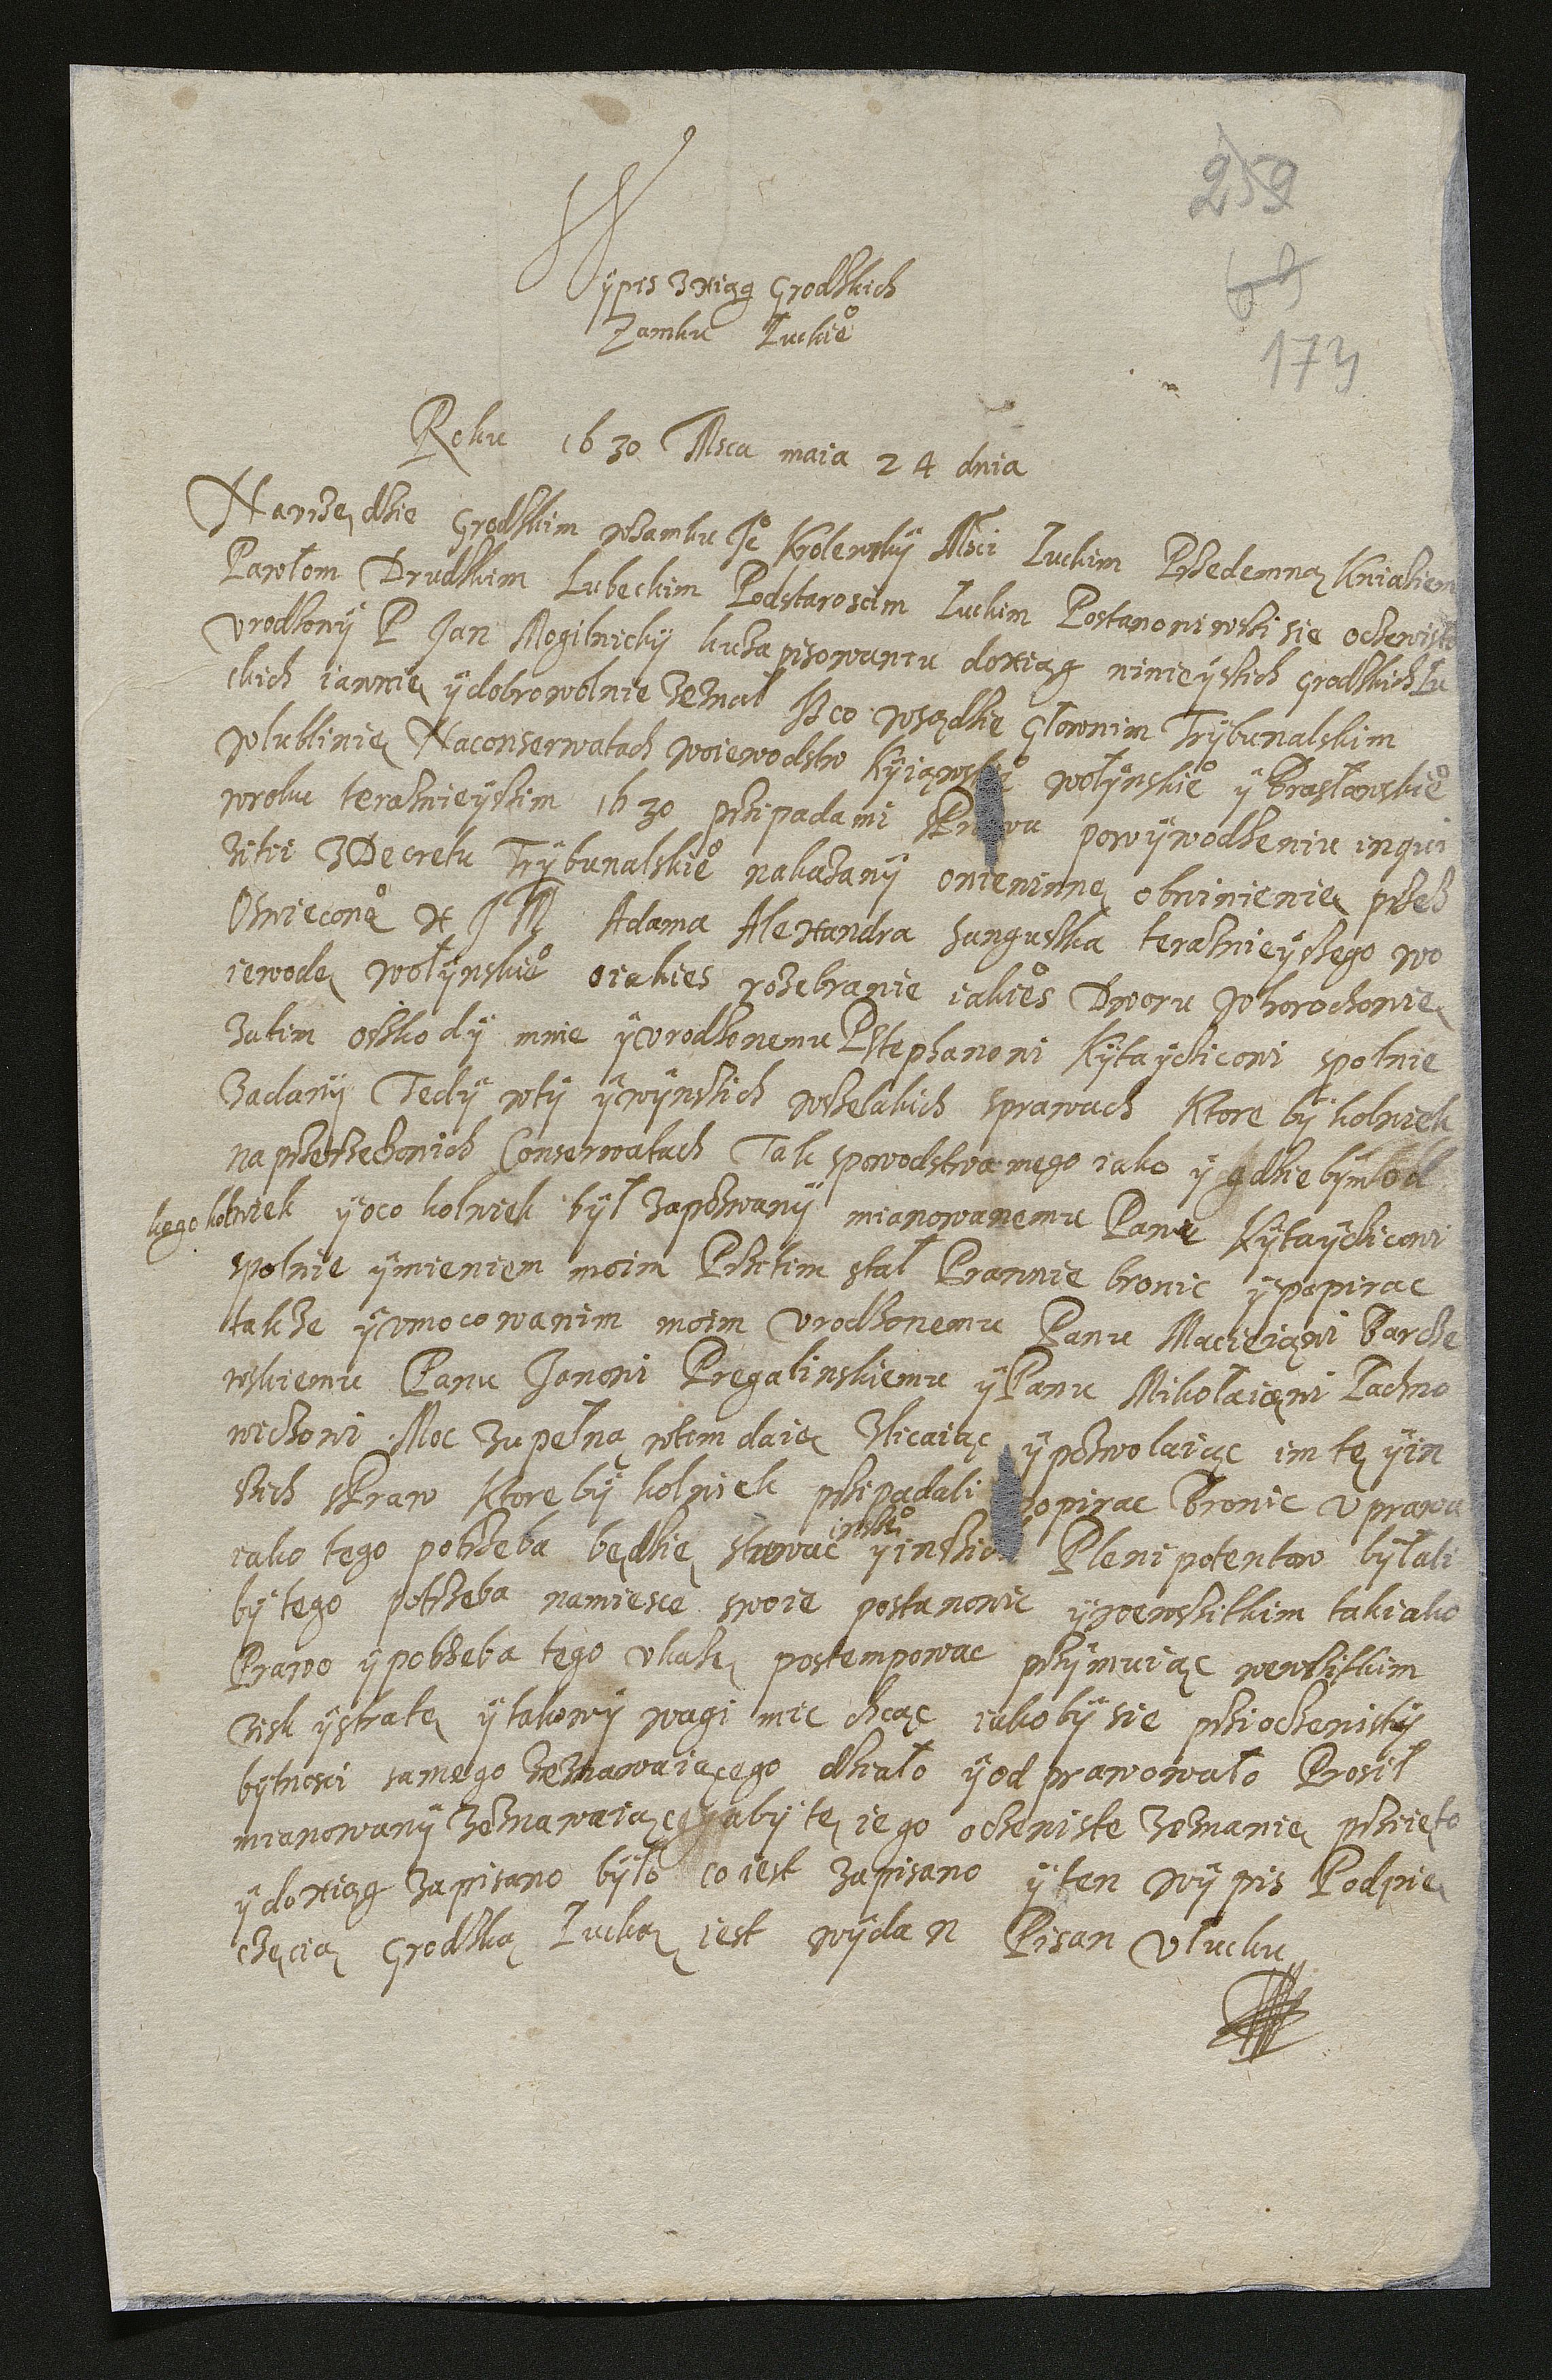 259
69
173
Wÿpis zxiąg Grodskich
Zamku Łuckie°
Roku 1630 Msca maia 24 dnia
Narzędzie Grodskim wzamku Je° Krolewskÿ Msci Łuckim Przedemną Kniaziem
Pawłom Drudskim Lubeckim Podstaroscim Łuckim Postanowiwszi się oczewisto
vrodzonÿ P Jan Mogilnickÿ kuzapisowaniu doxiąg ninieÿszich grodskich Łu
ckich iawnię ÿdobrowolnie zeznał Isz co wsądzie Głownim Trÿbunalskim
wlublinię Naconserwatach woiewodstw Kÿiąwskie° wołÿnskie° ÿ Brasławskie°
wroku teraznieÿszim 1630 przipada mi powÿwodzeniu inqui
zitii zDecretu Trÿbunalskie° nakazanÿ oniewinnę obwinienię przez
Oswiecone° X J M Adama Alexandra Sanguszka teraznieÿszego wo
iewodę wołÿnskie° oiakies rozebranie iakie°s Dworu whorochowię
zatim oszkodÿ mnie ÿvrodzonemu PStephanowi Kÿtaÿcziconi spolnie
zadanÿ Tedÿ wtÿ ÿwÿnszich wszelakich sprawach Ktore bÿ kolwiek
naprzerzeczonich Conserwatach Tak spowodstwa mego iako ÿ gdziebÿm od
kogokolwiek ÿoco kolwiek bÿł zapozwanÿ mianowanemu Panu Kÿtaÿcziconi
spolnie ÿmieniem moim Przitim stał Prawnie bronic ÿpopirac
takze ÿvmocowanim moim vrodzonemu Panu Macieiąwi Barcze
wskiemu Panu Janowi Pregalinskiemu ÿPanu Mikołaiąwi Łachno
wiczowi Moc zupełną wtim daię zlicaiąc ÿpozwolaiąc im tę ÿin
szich sPraw Ktore bÿ kolwiek przipadali popirac Bronic vprawa
iako tego potrzeba będzię ÿinszich Plenipotentow bÿłali
bÿ tego potrzeba namiesce swoie postanowic ÿwewszitkim takiako
Prawo ÿpotrzeba tego vkazę postempowac przÿmuiąc wewszitkim
zisk ÿstratę ÿtakowÿ wagi miec chcąc iakobÿ się przioczewistÿ
bÿtnosci samego zeznawaiącego działo ÿod prawowało Prosił
mianowanÿ zeznawaiącÿ abÿ tę iego oczewiste zeznanię prziięto
ÿdoxiąg zapisano bÿło co iest zapisano ÿten wÿpis Podpie
częcią Grodską Łucką iest wÿdan Pisan vłucku